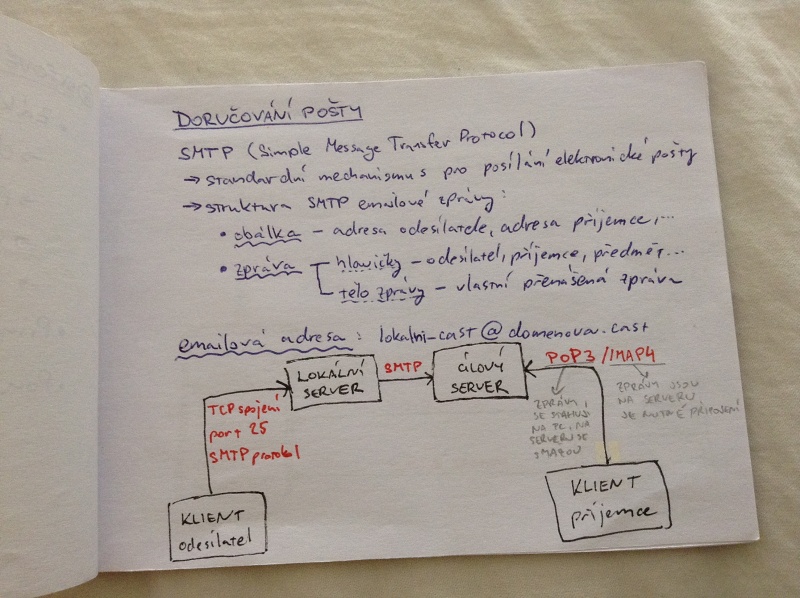 DORUČOVÁNÍ POŠTY
SMTP (Simple Message Transfer Protocol)
→ standardní mechanismus pro posílání elektronické pošty
→ struktura SMTP emailové zprávy:
• obálka – adresa odesílatele, adresa příjemce,...
• zpráva hlavičky – odesílatel, příjemce, předmět...
tělo zprávy – vlastní přenášená zpráva
emailová adresa: lokalni-cast@domenova.cast
LOKÁLNÍ
SERVER
SMTP
CÍLOVÝ
SERVER
POP3/IMAP4
ZPRÁVY
SE STAHUJÍ
NA PC, NA
SERVERU SE
SMAŽOU
ZPRÁVY JSOU
NA SERVERU
JE NUTNÉ PŘIPOJENÍ
TCP spojení
port 25
SMTP protokol
KLIENT
odesílatel
KLIENT
příjemce